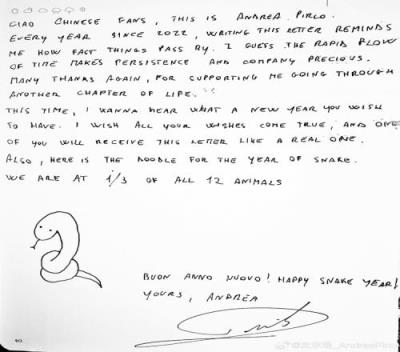 CIAO CHINESE FANS, THIS IS ANDREA PIRLO.
EVERY YEAR SINCE 2022, WRITING THIS LETTER REMINDS
ME HOW FAST THINGS PASS BY. I GUESS THE RAPID FLOW
OF TIME MAKES PERSISTENCE AND COMPANY PRECIOUS.
MANY THANKS AGAIN, FOR SUPPORTING ME GOING THROUGH
ANOTHER CHAPTER OF LIFE.
THIS TIME, I WANNA HEAR WHAT A NEW YEAR YOU WISH
TO HAVE. I WISH ALL YOUR WISHES COME TRUE, AND ONE
OF YOU WILL RECEIVE THIS LETTER LIKE A REAL ONE.
ALSO, HERE IS THE DOODLE FOR THE YEAR OF SNAKE.
WE ARE AT 1/3 OF ALL 12 ANIMALS
BUON ANNO NUOVO! HAPPY SNAKE YEAR!
YOURS, ANDREA